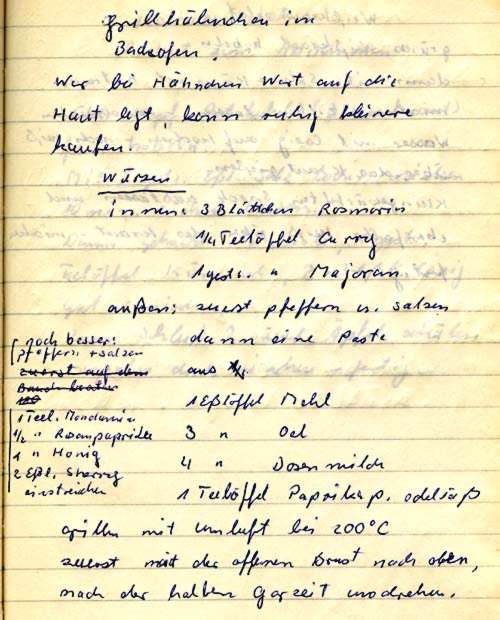 Grillhähnchen im
Backofen.
Wer bei Hähnchen Wert auf die
Haut legt, kann ruhig kleinere
kaufen.
Würzen
innen: 3 Blättchen Rosmarin
1/4 Teelöffel Curry
1 gestr. " Majoran
außen: zuerst pfeffern u. salzen
dann eine Paste
aus
1 Eßlöffel Mehl
3 " Oel
4 " Dosenmilch
1 Teelöffel Paprikap. edelsüß
noch besser:
pfeffern + salzen
zuerst auf dem
Bauch braten
180
1 Teel. Mondamin
1/2 " Rosenpaprika
1 " Honig
2 Eßl. Sherry
einstreichen
grillen mit Umluft bei 200°C
zuerst mit der offenen Brust nach oben,
nach der halben Garzeit umdrehen.